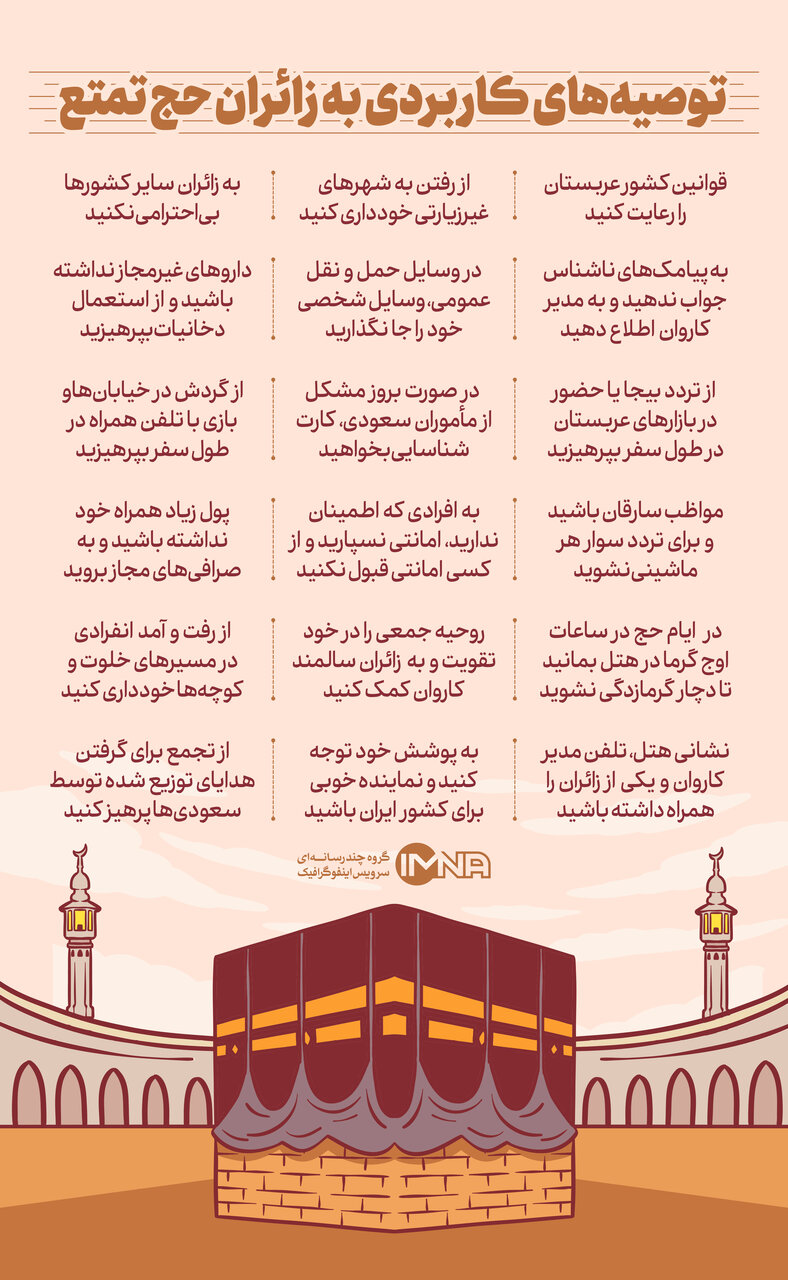 توصیه‌های کاربردی به زائران حج تمتع
قوانین کشور عربستان
را رعایت کنید
از رفتن به شهرهای
غیرزیارتی خودداری کنید
به زائران سایر کشورها
بی‌احترامی نکنید
به پیامک‌های ناشناس
جواب ندهید و به مدیر
کاروان اطلاع دهید
در وسایل حمل و نقل
عمومی، وسایل شخصی
خود را جا نگذارید
داروهای غیرمجاز نداشته
باشید و از استعمال
دخانیات بپرهیزید
از تردد بیجا یا حضور
در بازارهای عربستان
در طول سفر بپرهیزید
در صورت بروز مشکل
از مأموران سعودی، کارت
شناسایی بخواهید
از گردش در خیابان‌ها و
بازی با تلفن همراه در
طول سفر بپرهیزید
مواظب سارقان باشید
و برای تردد سوار هر
ماشینی نشوید
به افرادی که اطمینان
ندارید، امانتی نسپارید و از
کسی امانتی قبول نکنید
پول زیاد همراه خود
نداشته باشید و به
صرافی‌های مجاز بروید
در ایام حج در ساعات
اوج گرما در هتل بمانید
تا دچار گرمازدگی نشوید
روحیه جمعی را در خود
تقویت و به زائران سالمند
کاروان کمک کنید
از رفت و آمد انفرادی
در مسیرهای خلوت و
کوچه‌ها خودداری کنید
نشانی هتل، تلفن مدیر
کاروان و یکی از زائران را
همراه داشته باشید
به پوشش خود توجه
کنید و نماینده خوبی
برای کشور ایران باشید
از تجمع برای گرفتن
هدایای توزیع شده توسط
سعودی‌ها پرهیز کنید
IMNA
گروه چندرسانه‌ای
سرویس اینفوگرافیک